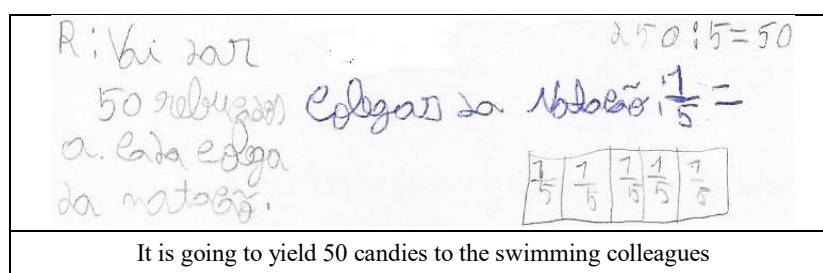 R: Vai dar
250:5=50
50 rebuçados
a. Cada colega
da natação.
Colegas da Natação: 1/5 =
1/5 1/5 1/5 1/5 1/5
It is going to yield 50 candies to the swimming colleagues